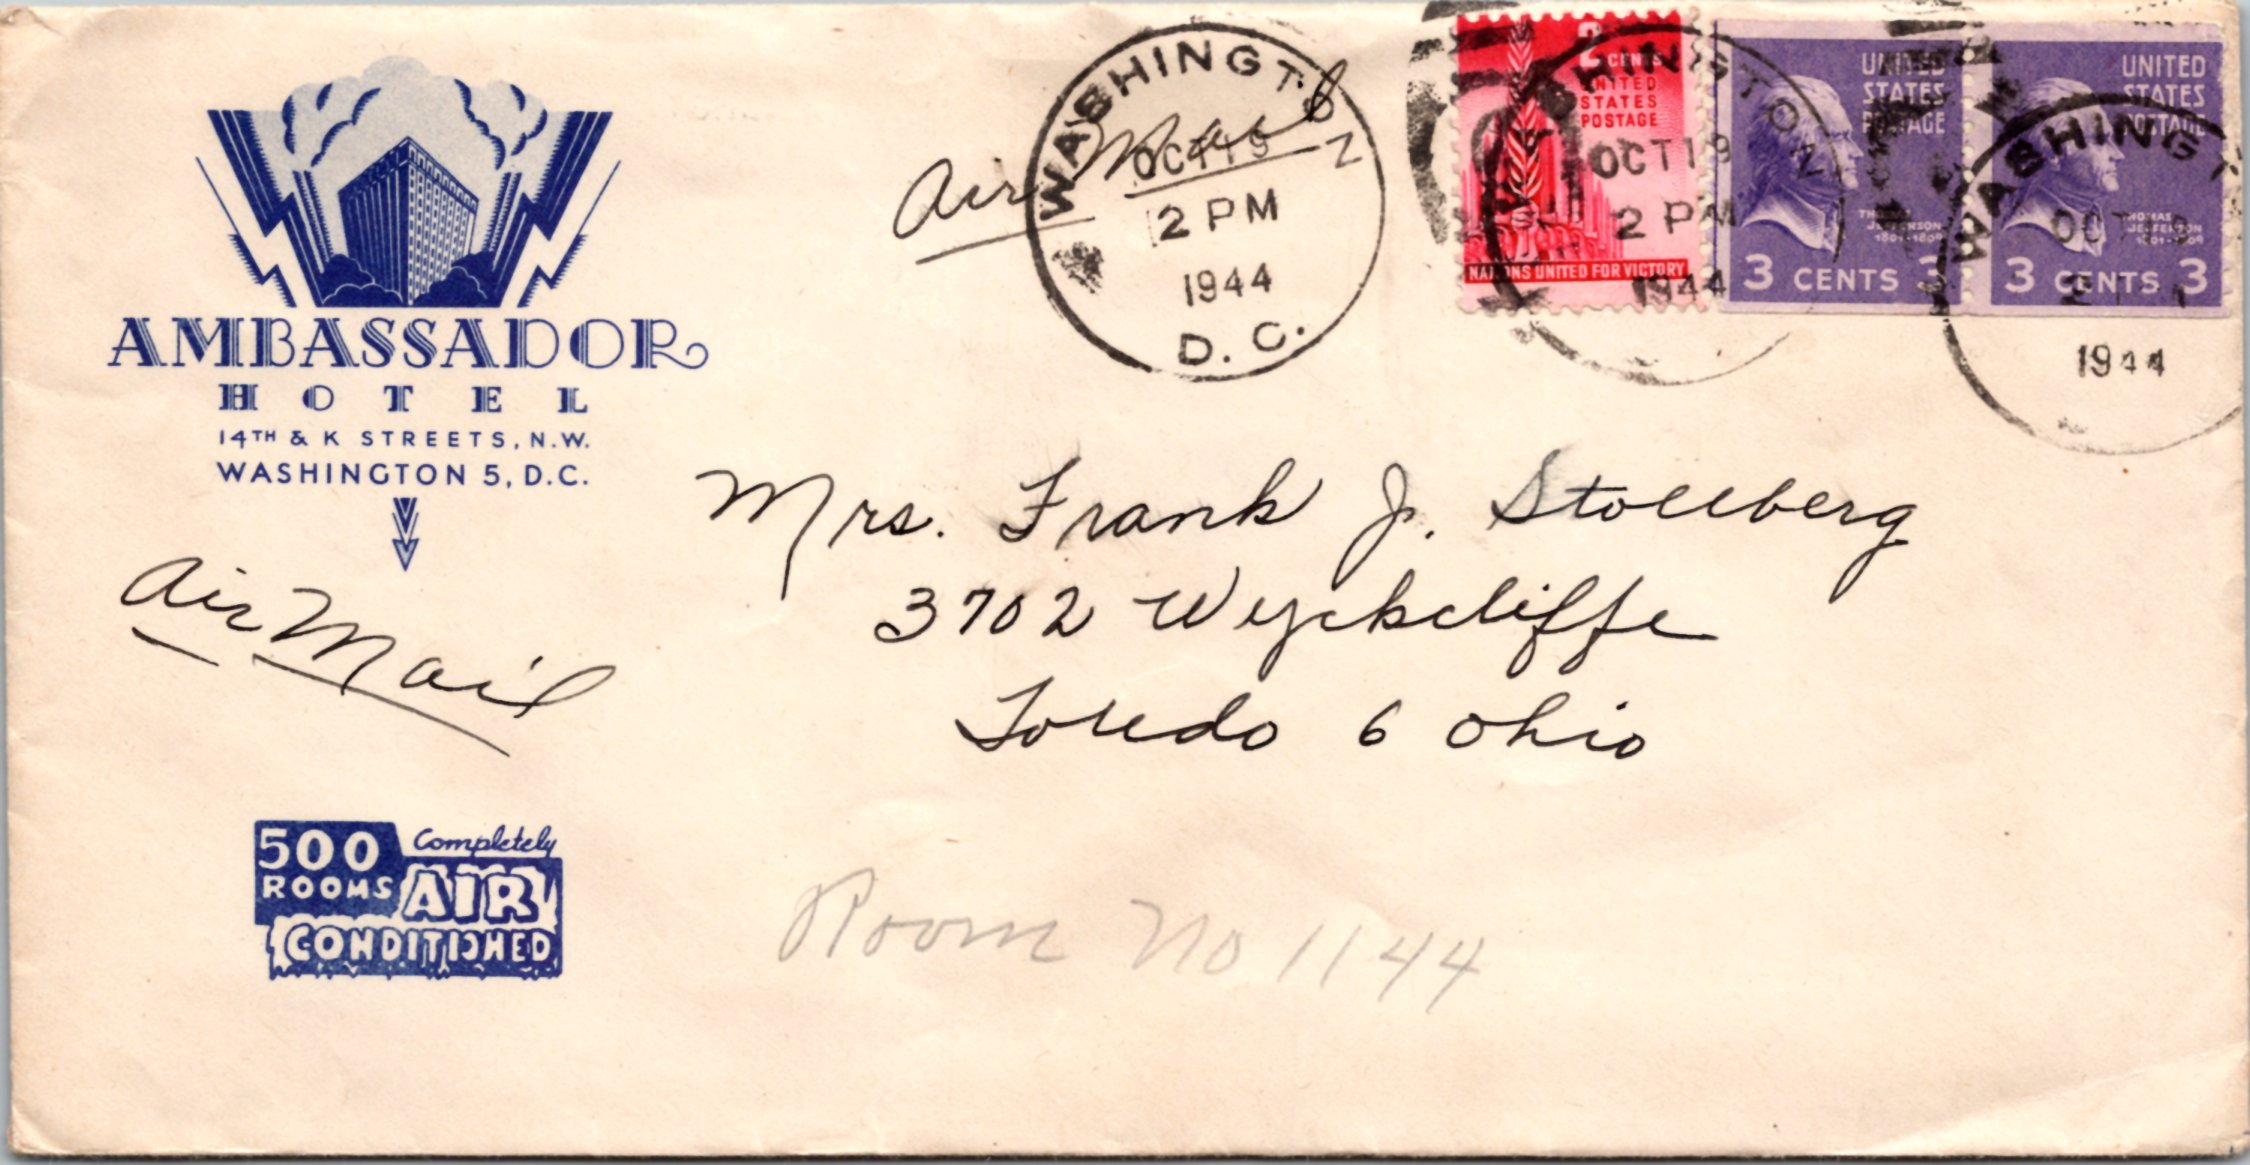 AMBASSADOR
HOTEL
14TH & K STREETS, N.W.
WASHINGTON 5, D.C.
Air Mail
WASHINGTON
OCT 19
2 PM
1944
D.C.
2 CENTS
UNITED
STATES
POSTAGE
NATIONS UNITED FOR VICTORY
WASHINGTON
OCT 19
2 PM
1944
UNITED
STATES
POSTAGE
THOMAS
JEFFERSON
1801-1809
3 CENTS 3
UNITED
STATES
POSTAGE
THOMAS
JEFFERSON
1801-1809
3 CENTS 3
WASHINGT
OCT
1944
Air Mail
Mrs. Frank J. Stollberg
3702 Wyckcliffe
Toledo 6 Ohio
500
ROOMS
Completely
AIR
CONDITIONED
Room No 1144